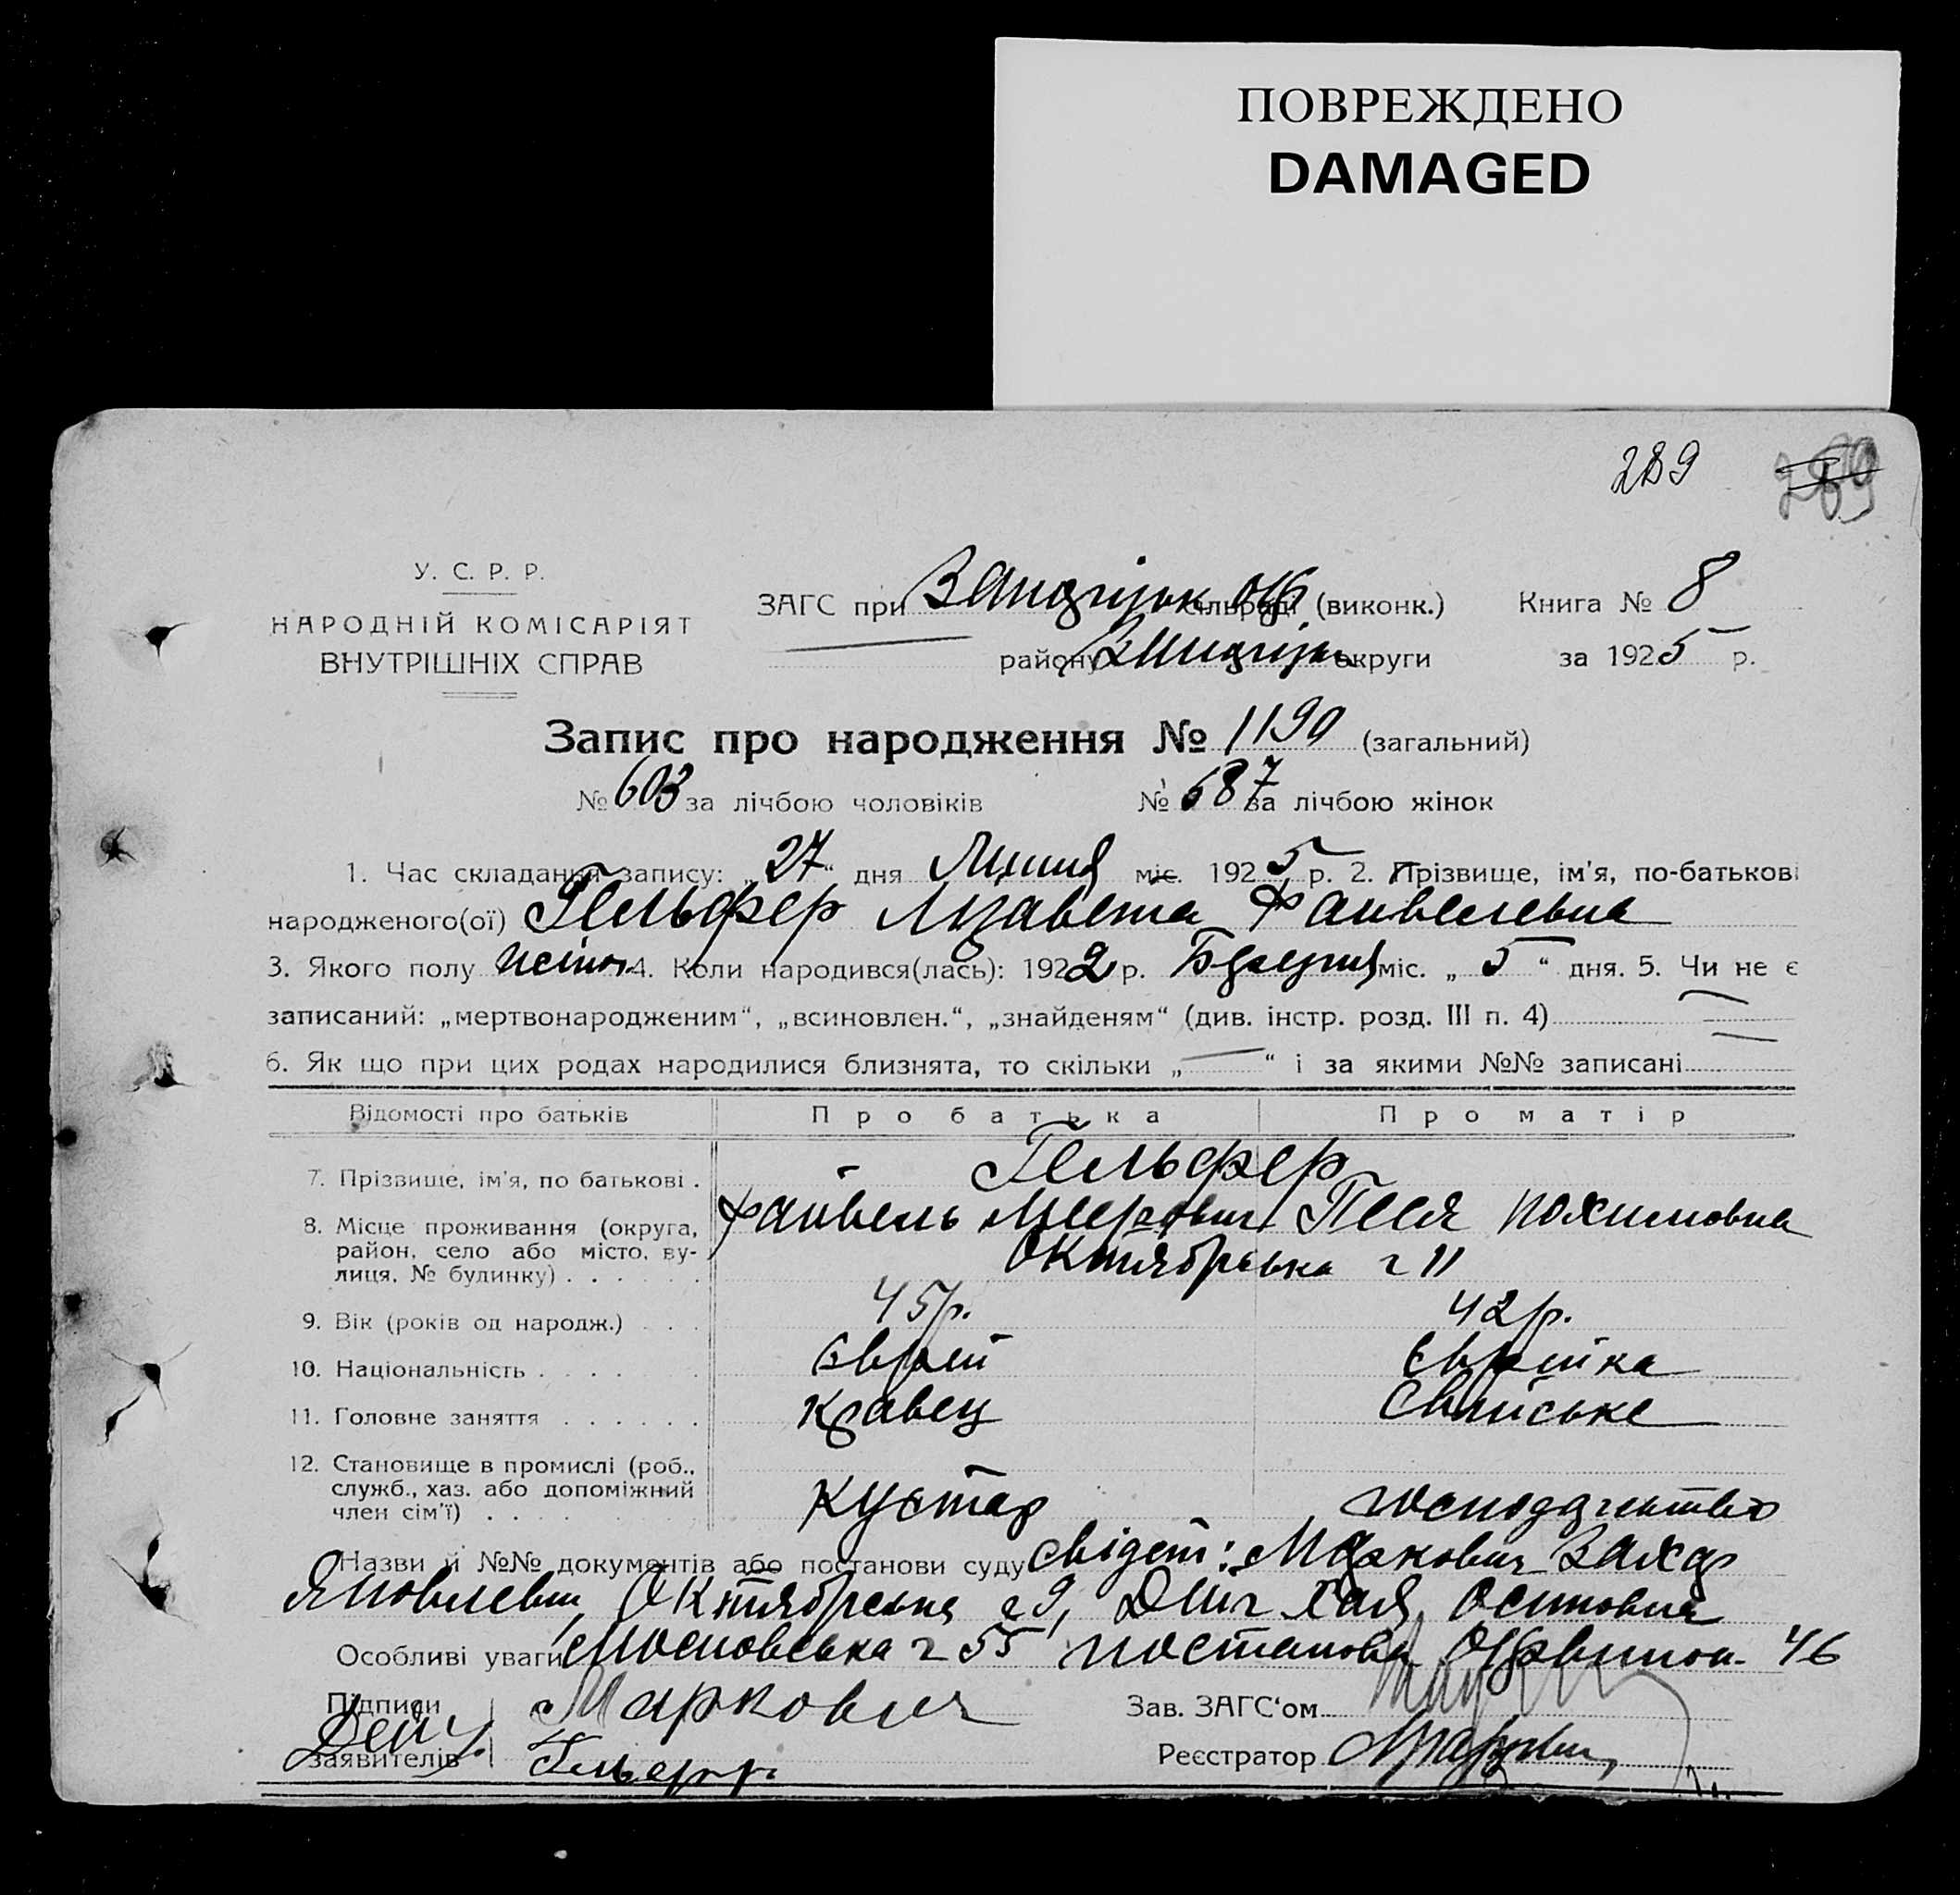 ПОВРЕЖДЕНО
DAMAGED
289
У. С. Р. Р.
НАРОДНІЙ КОМІСАРІЯТ
ВНУТРІШНІХ СПРАВ
ЗАГС при сільраді (виконк.)
району округи
Книга № 8
за 1925 р.
Запис про народження № 1190 (загальний)
№ 603 за лічбою чоловіків № 687 за лічбою жінок
1. Час складання запису: „27“ дня Липня міс. 1925 р. 2. Прізвище, ім'я, по-батькові
народженого(ої) Гельфер Лизавета Файвелевна
3. Якого полу жіноч 4. Коли народився(лась): 1922 р. міс. „5“ дня. 5. Чи не є
записаний: „мертвонародженим“, „всиновлен.“, „знайденям“ (див. інстр. розд. III п. 4)
6. Як що при цих родах народилися близнята, то скільки „—“ і за якими №№ записані
Відомості про батьків Про батька Про матір
7. Прізвище, ім'я, по батькові . Гельфер
Файвель Меерович Песя Нохимовна
8. Місце проживання (округа, район, село або місто, вулиця, № будинку) . . . . . . Октябрська ч 11
9. Вік (років од народж.) . . . 45 р. 42 р.
10. Національність . . . . . Єврей Єврейка
11. Головне заняття . . . . . . Кравець Свійське
12. Становище в промислі (роб., служб., хаз. або допоміжний член сім'ї) . . . . Кустар господарство
Назви й №№ документів або постанови суду Свідет: Маркович Захар
Яковлевич, Октябрська ч 9, Хая Осиповна
Особливі уваги Московська ч 55 постанова 46
Підписи заявителів
Маркович
Зав. ЗАГС‘ом
Реєстратор